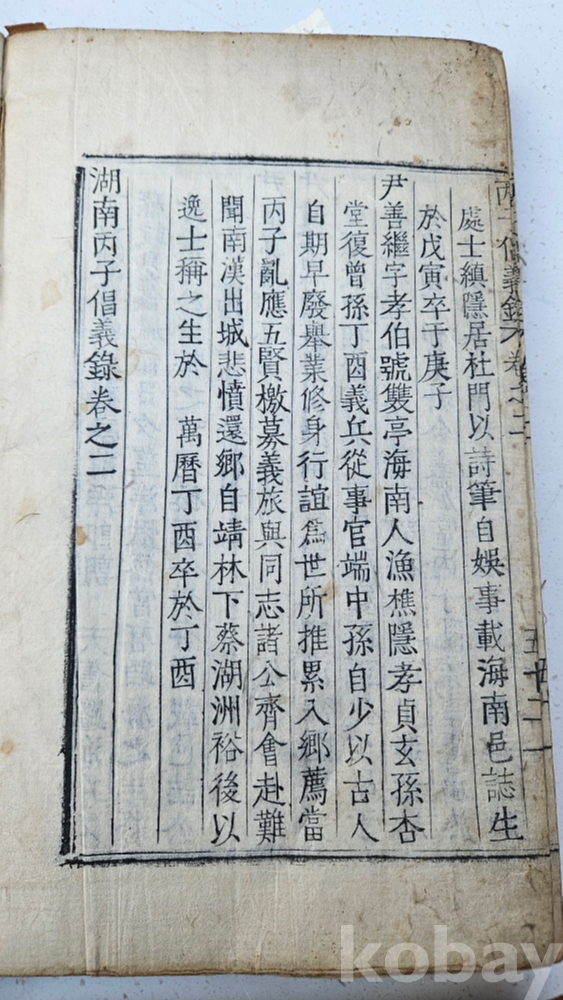 倡義錄 卷之二
五十二
處士縝隱居杜門以詩筆自娛事載海南邑誌生
於戊寅卒于庚子
尹善繼字孝伯號雙亭海南人漁樵隱孝貞玄孫杏
堂復曾孫丁酉義兵從事官端中孫自少以古人
自期早廢舉業修身行誼爲世所推累入鄉薦當
丙子亂應五賢檄募義旅與同志諸公齊會赴難
聞南漢出城悲憤還鄉自靖林下蔡湖洲裕後以
逸士稱之生於 萬曆丁酉卒於丁酉
湖南丙子倡義錄卷之二
kobay